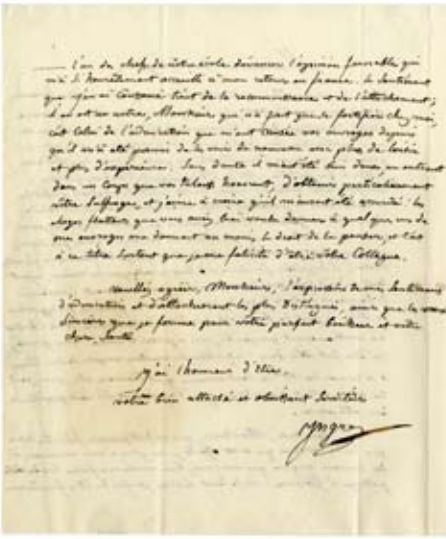 l'un des chefs de notre école devancer l'opinion favorable qui
m'a si honorablement accueilli à mon retour en france. le sentiment
que j'en ai conservé tient de la reconnaissance et de l'attachement;
il en est un autre, Monsieur, qui n'a fait que se fortifier chez moi,
c'est celui de l'admiration que m'ont causée vos ouvrages depuis
qu'il m'a été permis de les voir de nouveau avec plus de loisir
et plus d'expérience. Sans doute il m'eut été bien doux, en entrant
dans un Corps que vos talents honorent, d'obtenir particulièrement
votre suffrage, et j'aime à croire qu'il m'aurait été accordé: les
éloges flatteurs que vous avez bien voulu donner à quelques uns de
mes ouvrages me donnent au moins le droit de le penser, et c'est
à ce titre surtout que je me félicite d'être votre Collègue.
veuillez agréer, Monsieur, l'expression de mes sentiments
d'admiration et d'attachement les plus distingués, ainsi que les vœux
sincères que je forme pour votre parfait bonheur et votre
chère santé.
j'ai l'honneur d'être
votre bien attaché et obéissant Serviteur
Ingres